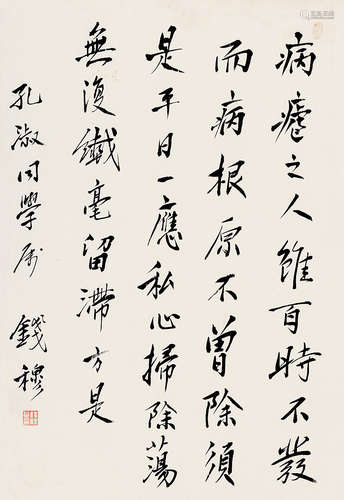 病瘧之人雖百時不發
而病根原不曾除須
是平日一應私心掃除蕩
無復鐵毫留滯方是
孔淑同學屬 錢穆